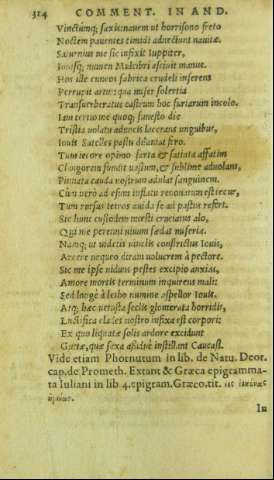 314 COMMENT. IN AND.
Vinctumq; saxis: nauem ut horrisono freto
Noctem pauentes timidi adnectunt nauitæ.
Saturnius me sic infixit Iuppiter,
Iouisq; numen Mulcibri asciuit manus.
Hos ille cuneos fabrica crudeli inserens
Perrupit artus: qua miser solertia
Transuerberatus castrum hoc furiarum incolo.
Iam tertio me quoq; funesto die
Tristi uolatu aduncis lacerans unguibus,
Iouis Satelles pastu dilaniat fero.
Tum iecore opimo farta & satiata affatim
Clangorem fundit uastum, & sublime aduolans,
Pinnata cauda nostrum adulat sanguinem.
Cùm verò adesum inflatu renouatum est iecur,
Tum rursus tetros auida se ad pastus refert.
Sic hunc custodem mœsti cruciatus alo,
Qui me perenni uiuum fœdat miseria.
Namq; ut uidetis vinclis constrictus Iouis,
Arcere nequeo diram uolucrem à pectore.
Sic me ipse uiduus pestes excipio anxias,
Amore mortis terminum inquirens mali:
Sed longè à letho numine aspellor Iouis.
Atq; hæc uetusta seclis glomerata horridis,
Luctifica clades nostro infixa est corpori:
Ex quo liquatæ solis ardore excidunt
Guttæ, quæ saxa assiduè instillant Caucasi.
Vide etiam Phornutum in lib. de Natu. Deor.
cap. de Prometh. Extant & Græca epigramma-
ta Iuliani in lib 4. epigram. Græco. tit. εἰς εἰκόνας
Iu